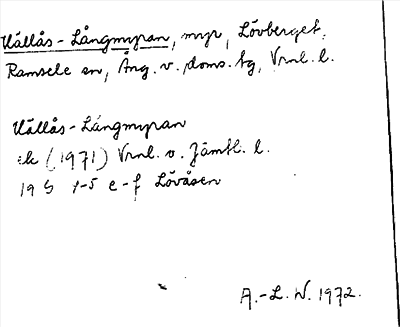 Hållås-Långmyran, myr, Lövberget,
Ramsele sn, Ång. v. doms. tg, Vrnl. l.
Hållås-Långmyran
ek (1971) Vrnl. o. Jämtl. l.
19 G 1-5 e-f Lövåsen
A.-L. N. 1972.